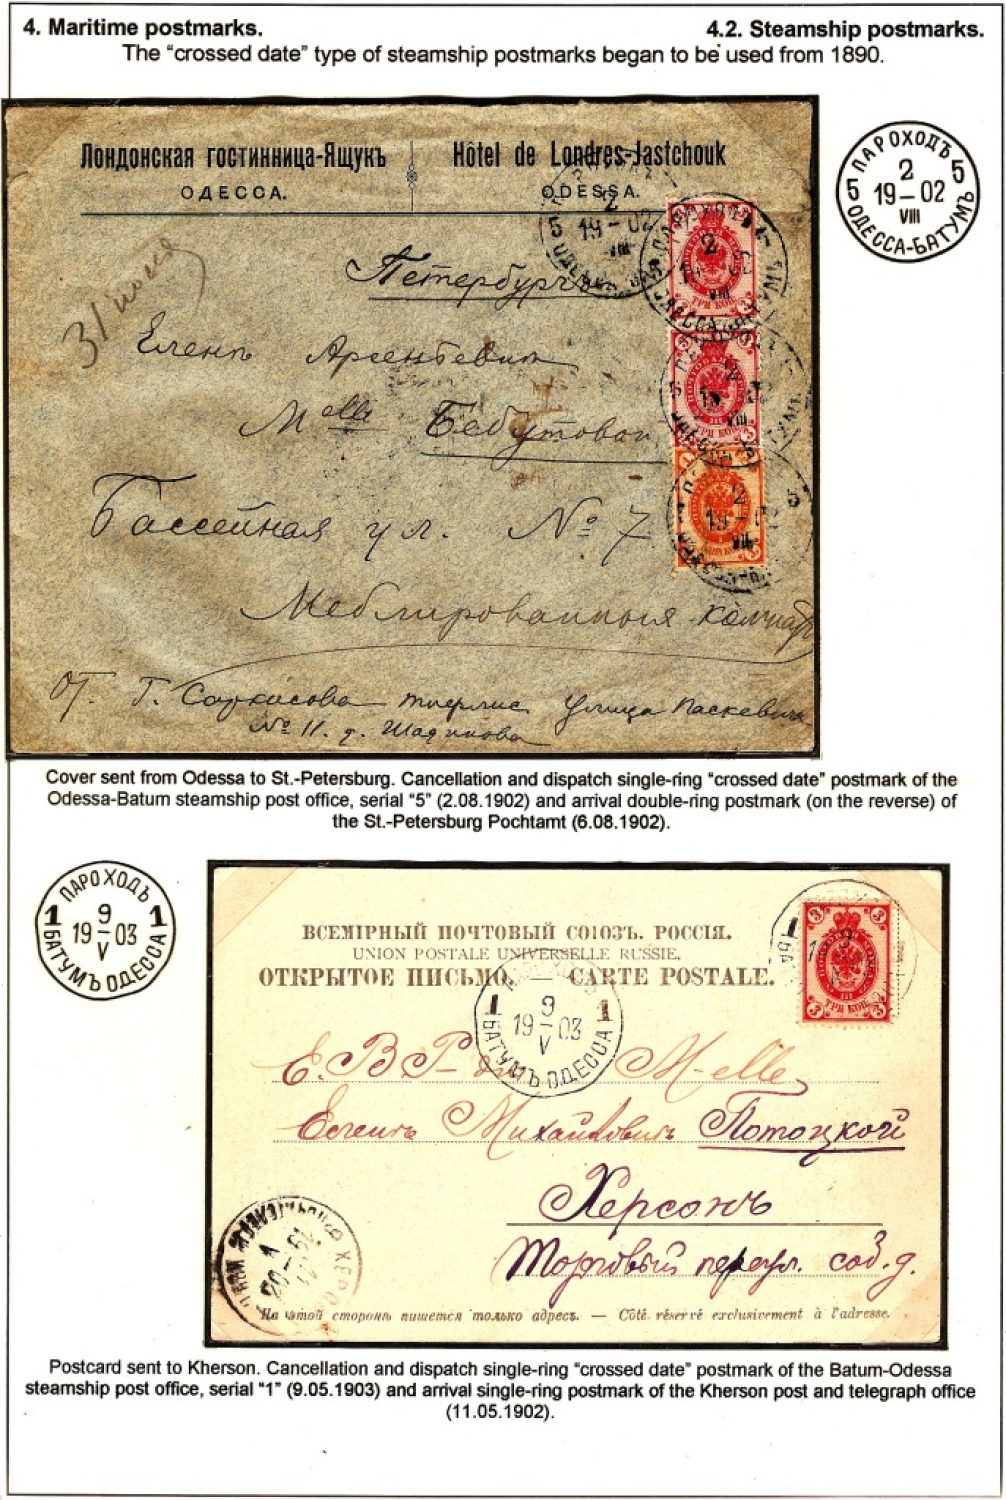 4. Maritime postmarks. 4.2. Steamship postmarks.
The “crossed date” type of steamship postmarks began to be used from 1890.
Лондонская гостинница-Ящукъ Hôtel de Londres-Jastchouk
ОДЕССА. ODESSA.
ПАРОХОДЪ
5 2 5
19–02
VIII
ОДЕССА-БАТУМЪ
5 2
19–02
VIII
31 июля
Петербургъ
Еленѣ Арсентьевнѣ
Melle Бебутовой
Бассейная ул. № 7
Меблированныя
От. Г. Саркисова Тифлис улица Паскевича
№ 11. д. Шадинова
Cover sent from Odessa to St.-Petersburg. Cancellation and dispatch single-ring “crossed date” postmark of the
Odessa-Batum steamship post office, serial “5” (2.08.1902) and arrival double-ring postmark (on the reverse) of
the St.-Petersburg Pochtamt (6.08.1902).
ПАРОХОДЪ
1 9 1
19–03
V
БАТУМЪ ОДЕССА
ВСЕМІРНЫЙ ПОЧТОВЫЙ СОЮЗЪ. РОССІЯ.
UNION POSTALE UNIVERSELLE RUSSIE.
ОТКРЫТОЕ ПИСЬМО. — CARTE POSTALE.
3 3
ТРИ КОП
3 3
1 9 1
19–03
V
БАТУМЪ ОДЕССА
Е. В. Р– M-elle
Евгеніи Михайловнѣ Потоцкой
Херсонъ
Торговый переул. соб. д.
На этой сторонѣ пишется только адресъ. — Côté réservé exclusivement à l'adresse.
Postcard sent to Kherson. Cancellation and dispatch single-ring “crossed date” postmark of the Batum-Odessa
steamship post office, serial “1” (9.05.1903) and arrival single-ring postmark of the Kherson post and telegraph office
(11.05.1902).